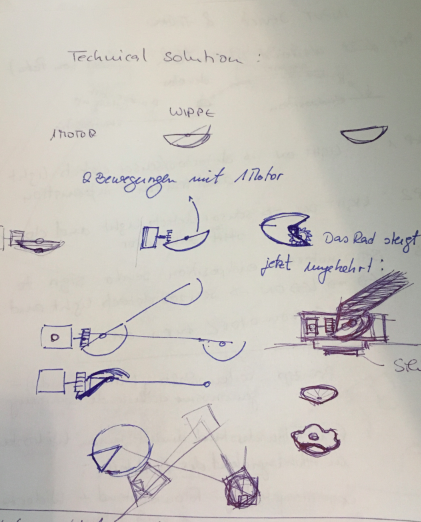 Technical Solution :
WIPPE
1 MOTOR
2 Bewegungen mit 1 Motor
Das Rad steigt
jetzt umgekehrt :